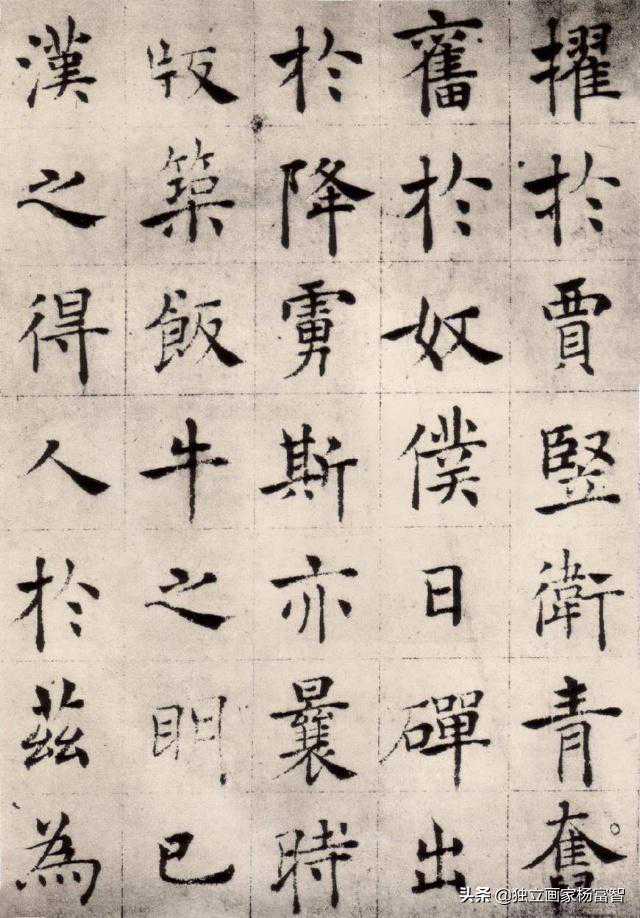 擢於賈竪衛青奮
奮於奴僕日磾出
於降虜斯亦曩時
版築飯牛之明已
漢之得人於茲為
头条 @独立画家杨富智